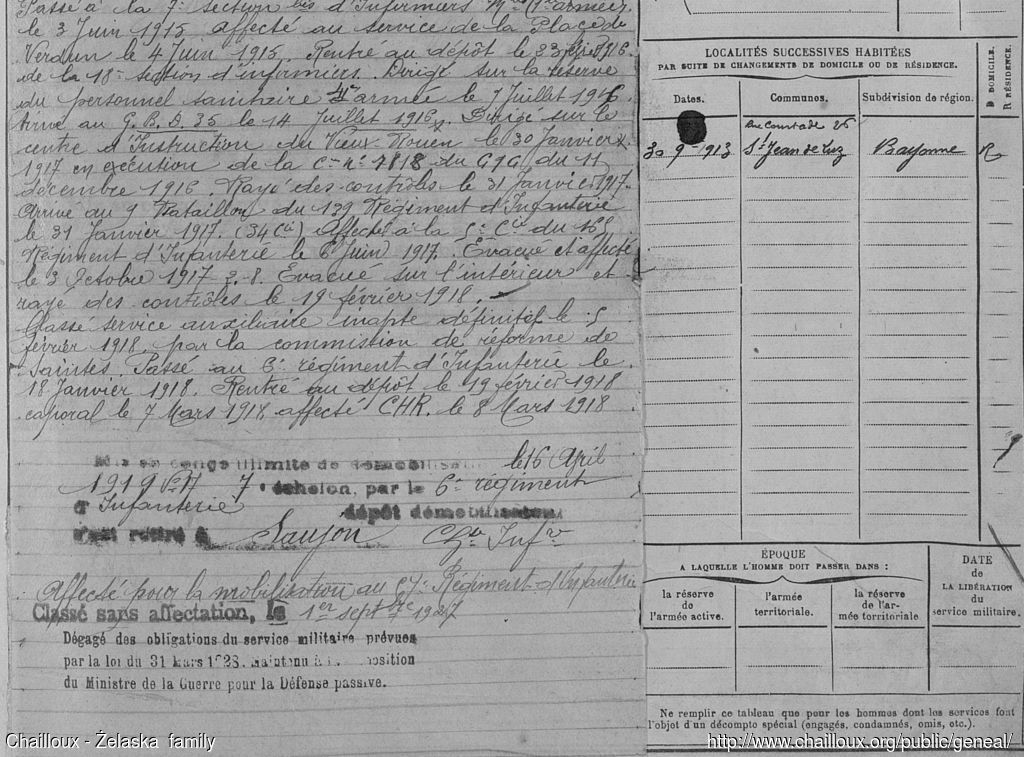 Passé à la 7e section bis d'Infirmiers
le 3 Juin 1915 affecté au service de la Place de
Verdun le 4 Juin 1915. Rentré au dépôt le 23
de la 18e section d'infirmiers. Dirigé sur la réserve
du personnel sanitaire armée le 7 Juillet 1916.
Arrivé au G.B.D. 35 le 14 Juillet 1916. Dirigé sur le
centre d'Instruction du Vieux-Rouen le 30 Janvier
1917 en exécution de la Cre no 1818 du GQG du 11
décembre 1916. Rayé des contrôles le 31 Janvier 1917.
Arrivé au 9 Bataillon du 139 Régiment d'Infanterie
le 31 Janvier 1917. (34 Cie) Affecté à la 5e Cie du 16e
Régiment d'Infanterie le 6 Juin 1917. Evacué et affecté
le 3 Octobre 1917 Evacué sur l'intérieur et
rayé des contrôles le 19 février 1918.
Classé service auxiliaire inapte définitif le 5
février 1918 par la commission de réforme de
Saintes. Passé au 6e régiment d'Infanterie le
18 Janvier 1918. Rentré au dépôt le 19 février 1918
caporal le 7 Mars 1918 affecté CHR. le 8 Mars 1918
Mis en congé illimité de démobilisation le 16 April
1919 7e échelon, par le 6e régiment
d'Infanterie dépôt démobilisateur
s'est retiré à Saujon Ch. Infre
Affecté pour la mobilisation au Régiment d'Infanterie
Classé sans affectation, le 1er septbre 1927
Dégagé des obligations du service militaire prévues
par la loi du 31 Mars 1928. Maintenu à la disposition
du Ministre de la Guerre pour la Défense passive.
LOCALITÉS SUCCESSIVES HABITÉES
PAR SUITE DE CHANGEMENTS DE DOMICILE OU DE RÉSIDENCE.
D DOMICILE.
R RÉSIDENCE.
Dates. Communes. Subdivision de région.
Rue Courtade 26
30-9-1913 St Jean de Luz Bayonne R
ÉPOQUE
A LAQUELLE L'HOMME DOIT PASSER DANS :
DATE
de
LA LIBÉRATION
du
service militaire.
la réserve
de
l'armée active.
l'armée
territoriale.
la réserve
de l'ar-
mée territoriale
Ne remplir ce tableau que pour les hommes dont les services font
l'objet d'un décompte spécial (engagés, condamnés, omis, etc.).
Chailloux - Żelaska family
http://www.chailloux.org/public/geneal/